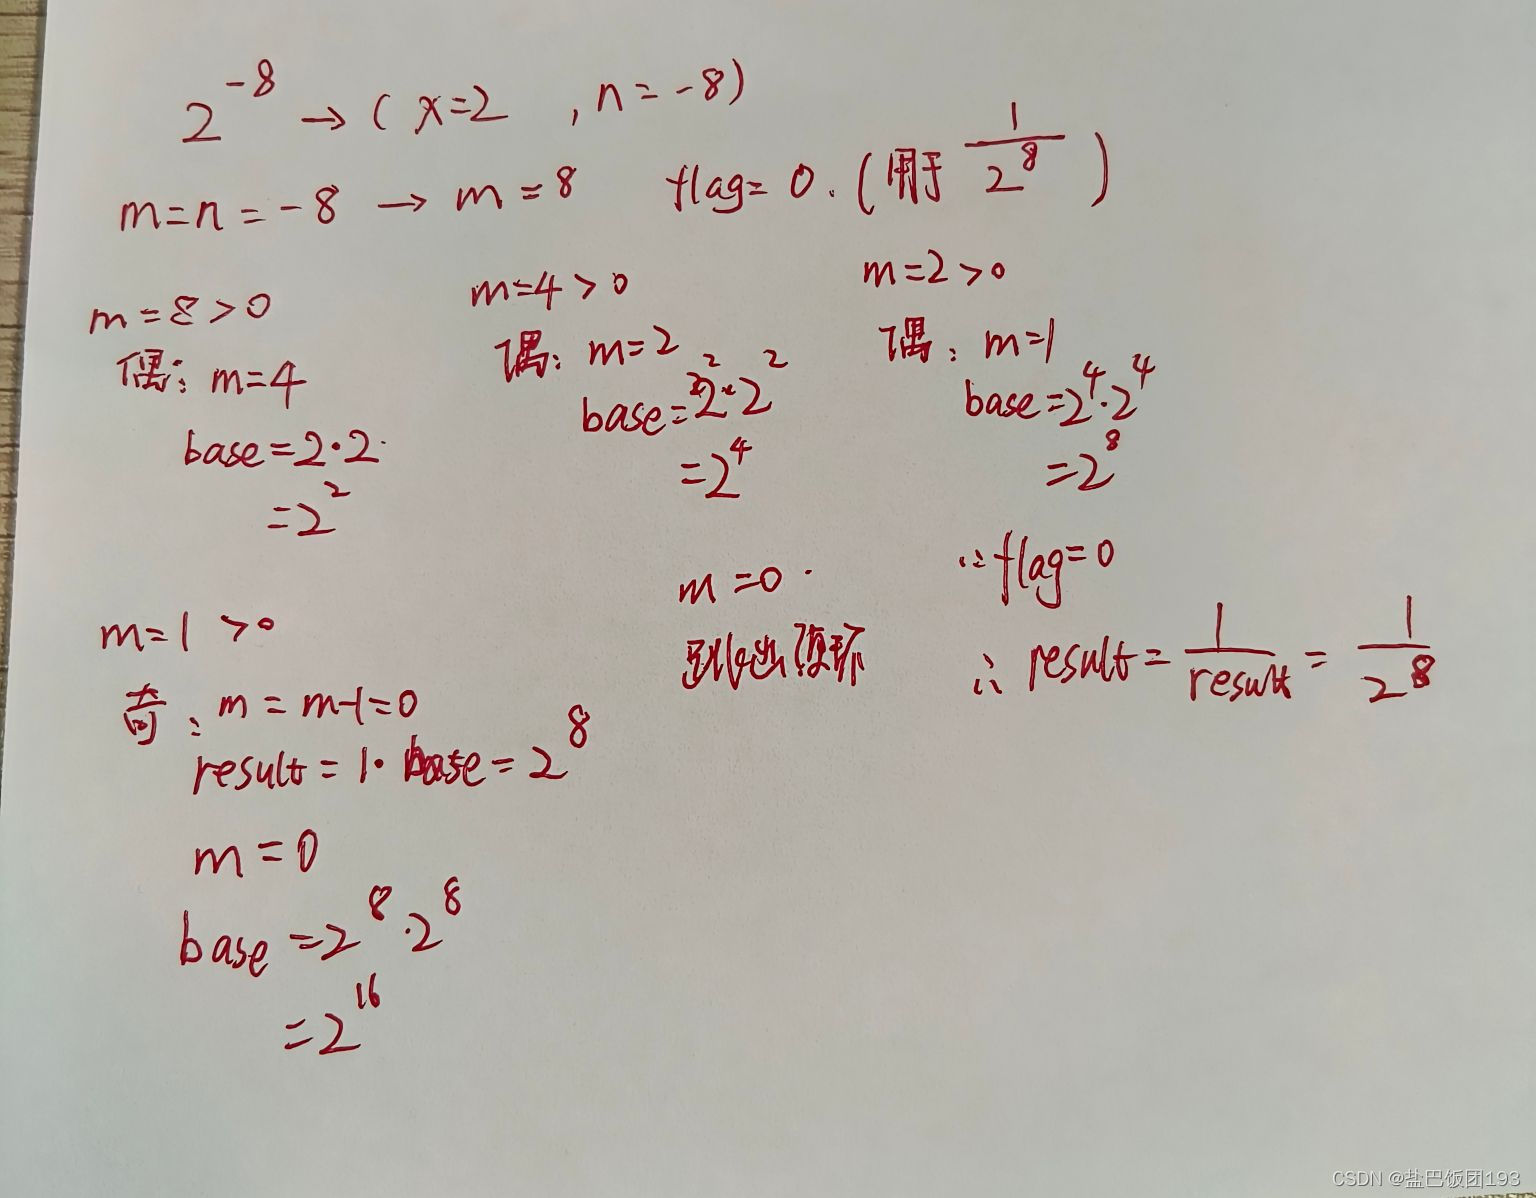 2^-8 → ( x=2 , n=-8)
m=n=-8 → m=8 flag=0. (用于 1/2^8 )
m=8>0
偶: m=4
base=2·2
=2^2
m=4>0
偶: m=2
base=2^2×2^2
=2^4
m=2>0
偶: m=1
base=2^4·2^4
=2^8
m=1 >0
奇: m=m-1=0
result=1·base=2^8
m=0
base=2^8·2^8
=2^16
m=0
跳出循环
∵flag=0
∴ result=1/result=1/2^8
CSDN @盐巴饭团193